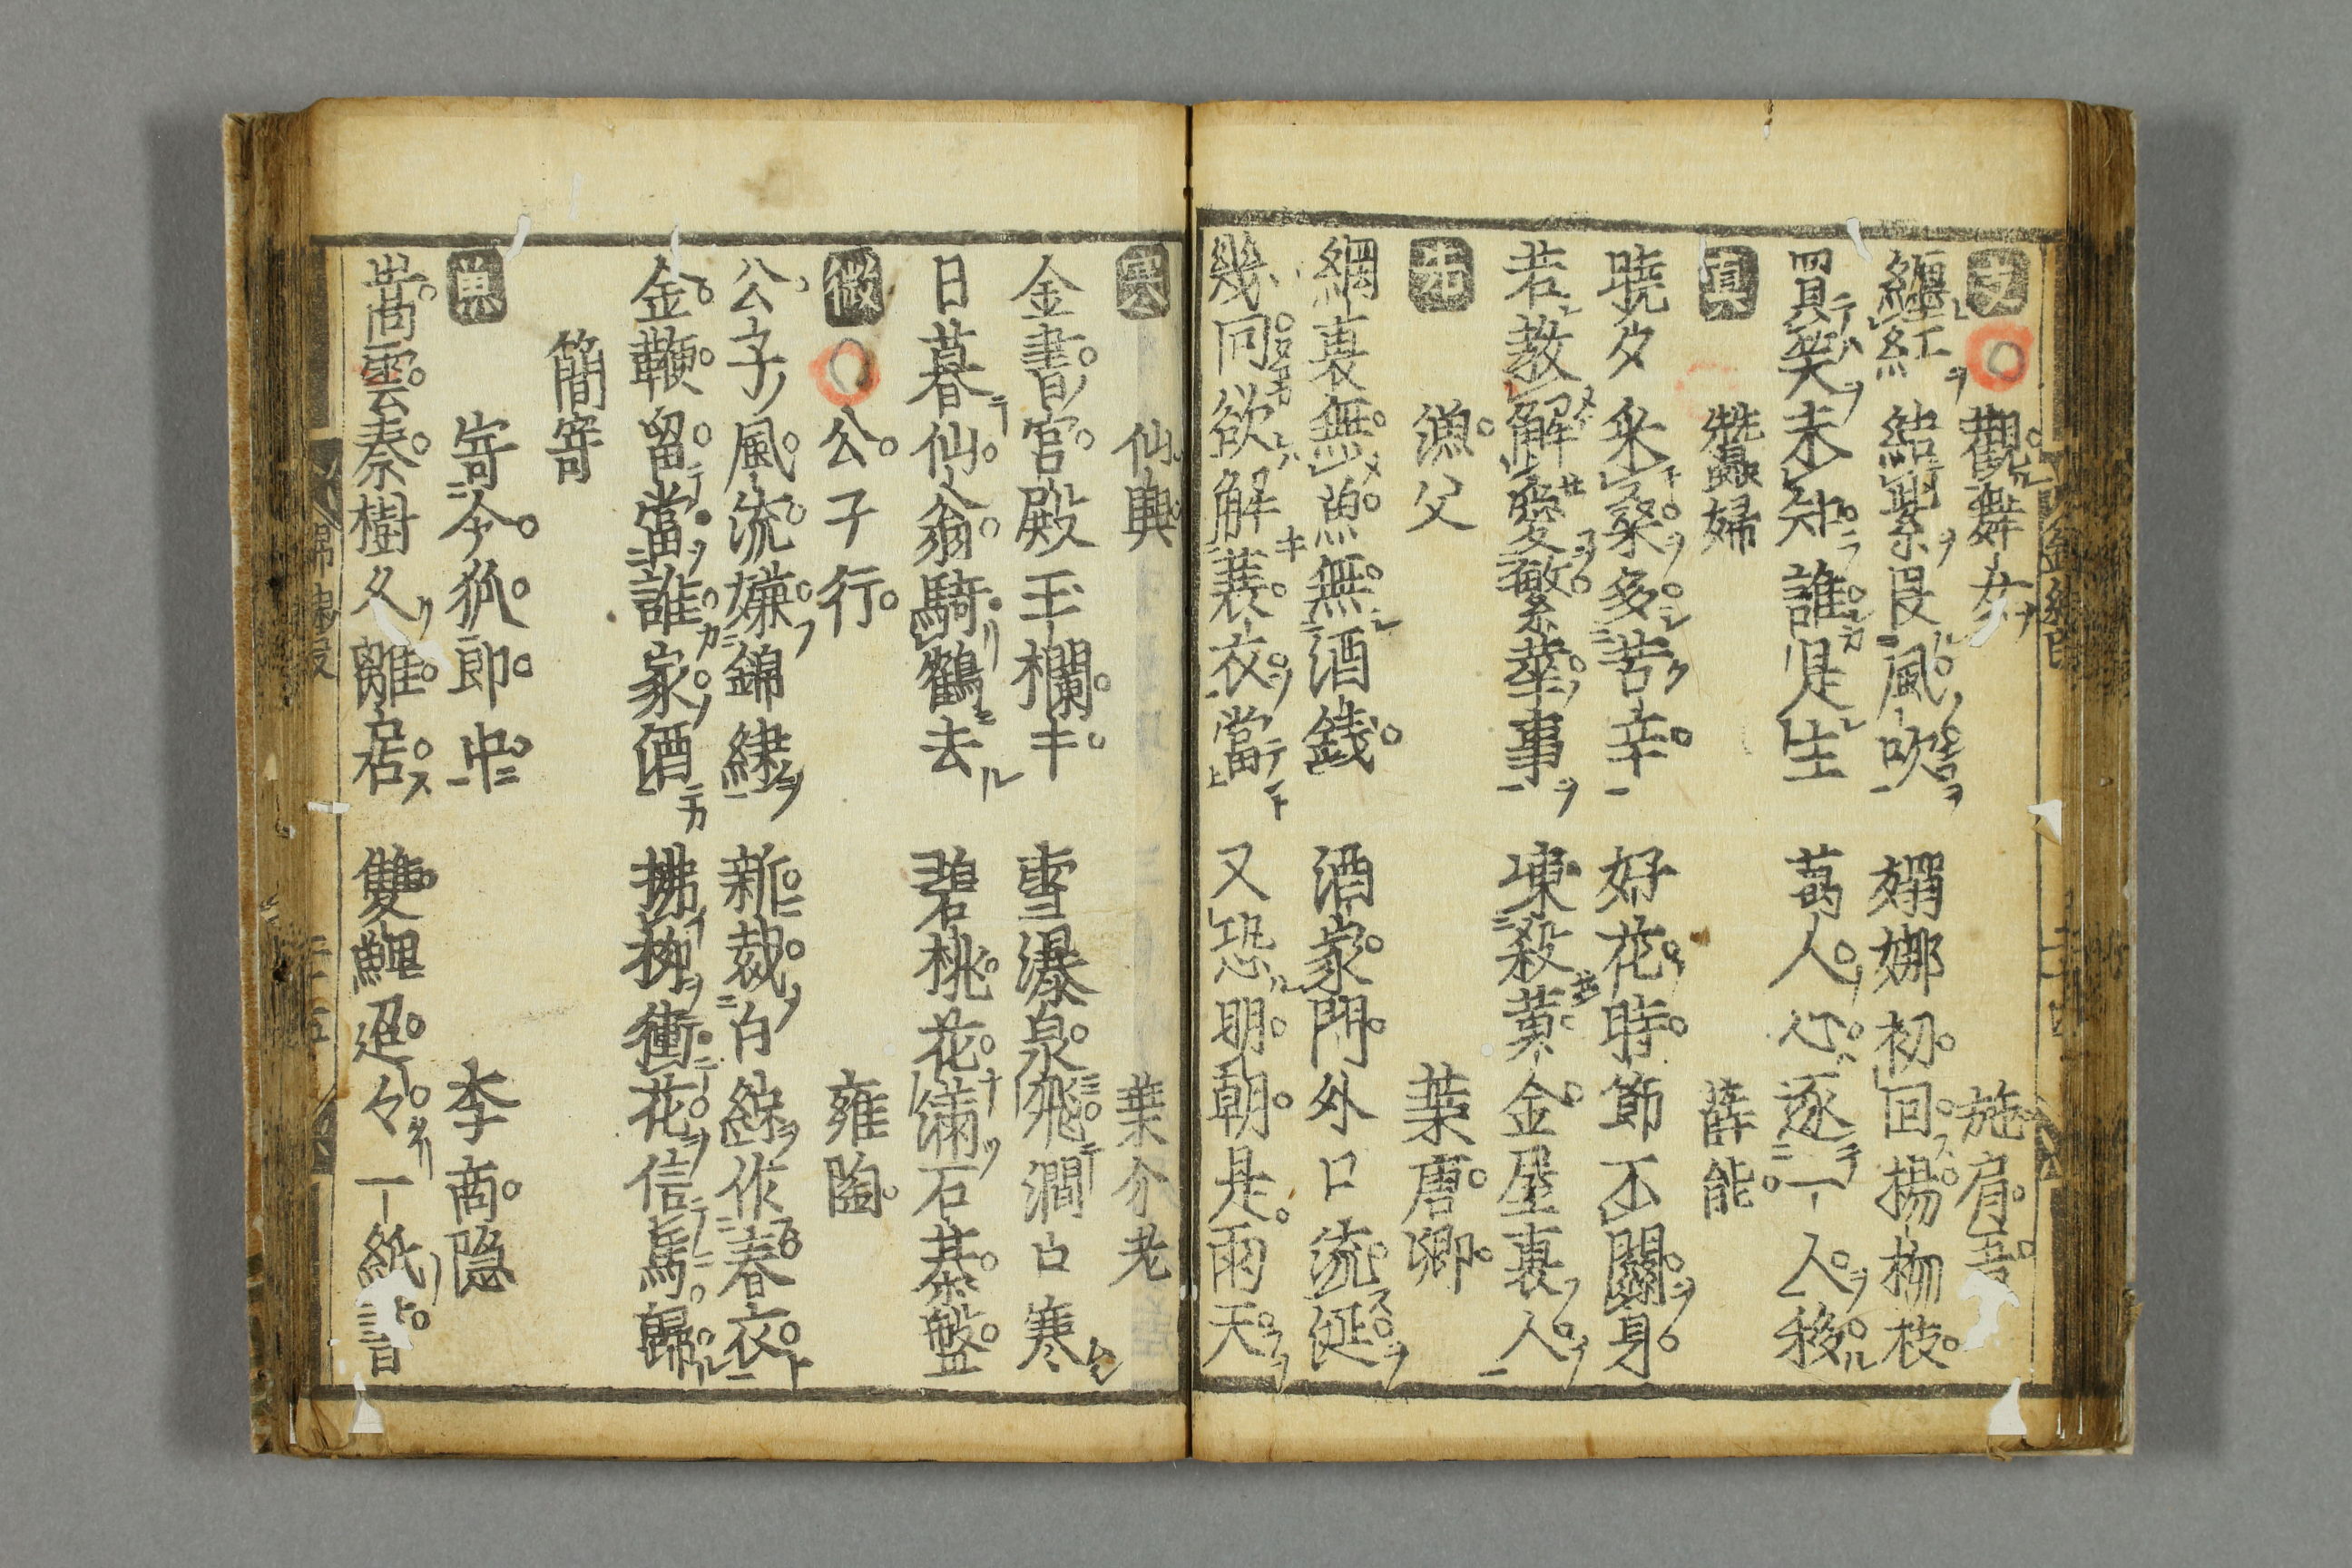 支 觀舞女 施肩吾
纏紅結紫畏風吹 嬝娜初回揚柳枝
買笑未知誰是主 萬人心逐一人移
真 蠶婦 薛能
曉夕采桑多苦辛 好花時節不關身
若教解愛繁華事 凍殺黄金屋裏人
先 漁父 葉唐卿
網裏無魚無酒錢 酒家門外口流涎
幾回欲解蓑衣當 又恐明朝是雨天
寒 仙興 葉介老
金書宮殿玉欄干 雪瀑泉飛澗白寒
日暮仙翁騎鶴去 碧桃花滿石棊盤
微 公子行 雍陶
公子風流嫌錦繡 新裁白紵作春衣
金鞭留當誰家酒 拂柳衝花信馬歸
簡寄
魚 寄令狐郎中 李商隠
嵩雲秦樹久離居 雙鯉迢々一紙書